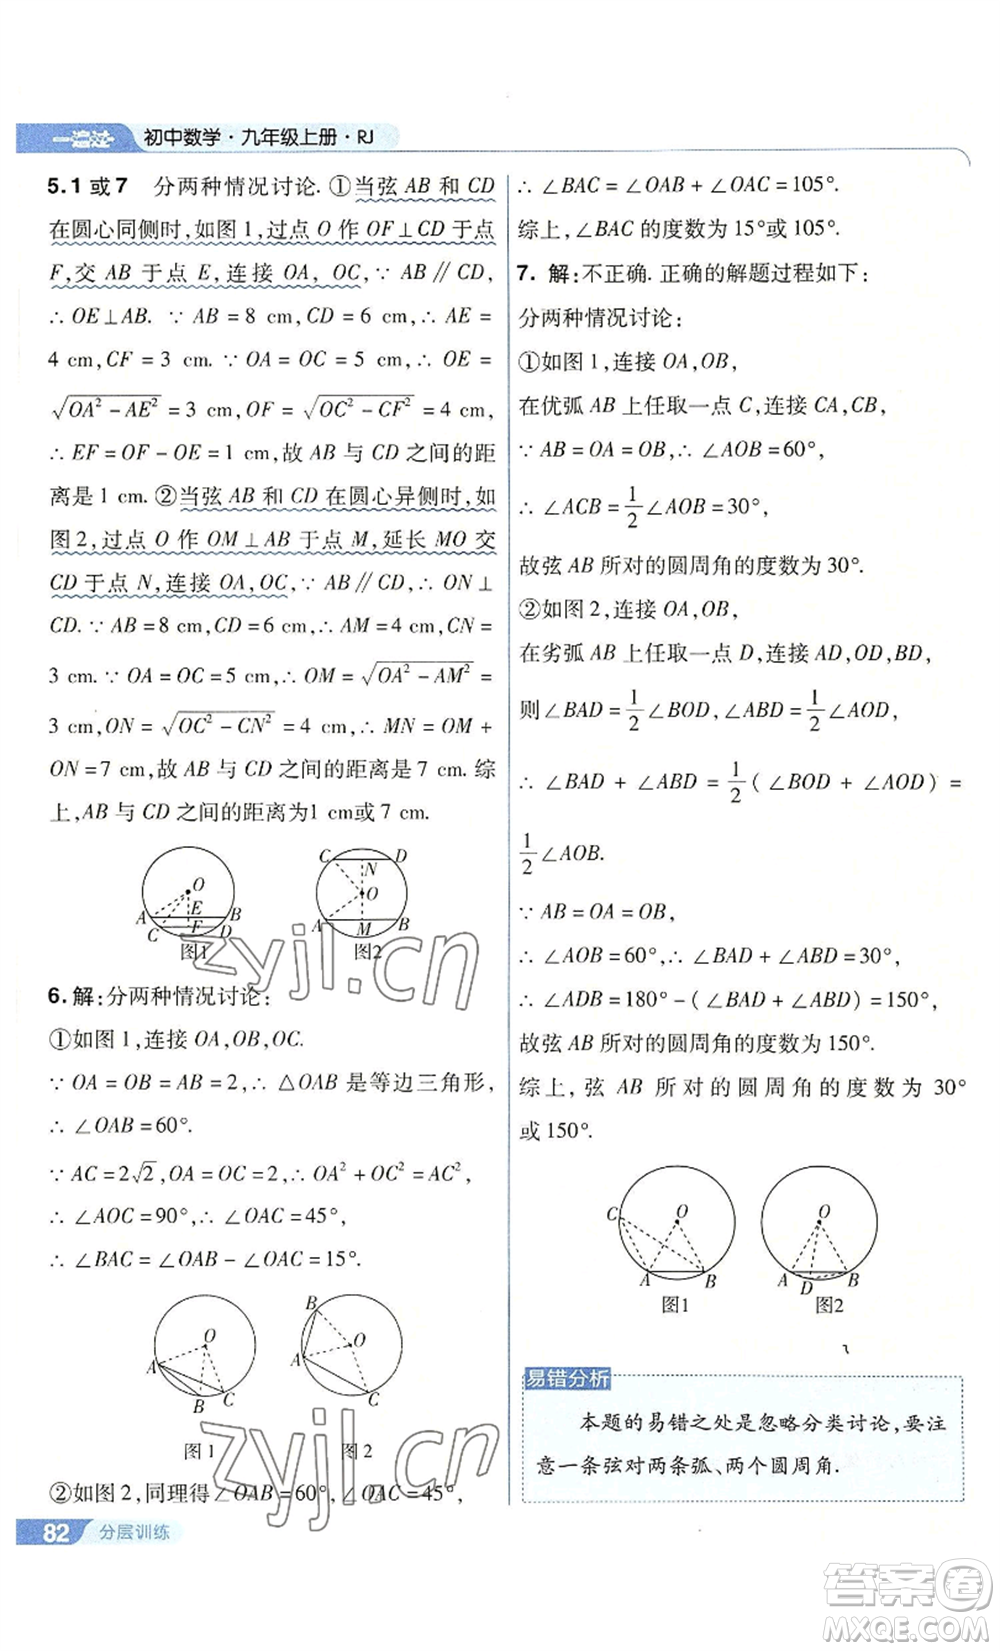 一遍过 初中数学·九年级上册·RJ
5. 1 或 7 分两种情况讨论. ①当弦 AB 和 CD
在圆心同侧时,如图 1,过点 O 作 OF⊥CD 于点
F,交 AB 于点 E,连接 OA, OC,∵ AB∥CD,
∴ OE⊥AB. ∵ AB=8 cm,CD=6 cm,∴ AE=
4 cm,CF=3 cm. ∵ OA=OC=5 cm,∴ OE=
√(OA²-AE²)=3 cm,OF=√(OC²-CF²)=4 cm,
∴ EF=OF-OE=1 cm,故 AB 与 CD 之间的距
离是 1 cm. ②当弦 AB 和 CD 在圆心异侧时,如
图 2,过点 O 作 OM⊥AB 于点 M,延长 MO 交
CD 于点 N,连接 OA,OC,∵ AB∥CD,∴ ON⊥
CD. ∵ AB=8 cm,CD=6 cm,∴ AM=4 cm,CN=
3 cm. ∵ OA=OC=5 cm,∴ OM=√(OA²-AM²)=
3 cm,ON=√(OC²-CN²)=4 cm,∴ MN=OM+
ON=7 cm,故 AB 与 CD 之间的距离是 7 cm. 综
上,AB 与 CD 之间的距离为1 cm或 7 cm.
O E A B C F D
图1
C D N O A M B
图2
zyjl.cn
6. 解:分两种情况讨论:
①如图 1,连接 OA,OB,OC.
∵ OA=OB=AB=2,∴ △OAB 是等边三角形,
∴ ∠OAB=60°.
∵ AC=2√2,OA=OC=2,∴ OA²+OC²=AC²,
∴ ∠AOC=90°,∴ ∠OAC=45°,
∴ ∠BAC=∠OAB-∠OAC=15°.
O A B C
图 1
B O A C
图 2
zyjl.cn
②如图 2,同理得∠OAB=60°,∠OAC=45°,
82 分层训练
∴ ∠BAC=∠OAB+∠OAC=105°.
综上,∠BAC 的度数为 15°或 105°.
7. 解:不正确. 正确的解题过程如下:
分两种情况讨论:
①如图 1,连接 OA,OB,
在优弧 AB 上任取一点 C,连接 CA,CB,
∵ AB=OA=OB,∴ ∠AOB=60°,
∴ ∠ACB=1/2∠AOB=30°,
故弦 AB 所对的圆周角的度数为 30°.
②如图 2,连接 OA,OB,
在劣弧 AB 上任取一点 D,连接 AD,OD,BD,
则∠BAD=1/2∠BOD,∠ABD=1/2∠AOD,
∴ ∠BAD+∠ABD=1/2(∠BOD+∠AOD)=
1/2∠AOB.
∵ AB=OA=OB,
∴ ∠AOB=60°,∴ ∠BAD+∠ABD=30°,
∴ ∠ADB=180°-(∠BAD+∠ABD)=150°,
故弦 AB 所对的圆周角的度数为 150°.
综上,弦 AB 所对的圆周角的度数为 30°
或 150°.
C O A B
图1
O A D B
图2
易错分析
本题的易错之处是忽略分类讨论,要注
意一条弦对两条弧、两个圆周角.
答案卷
MXQE.COM